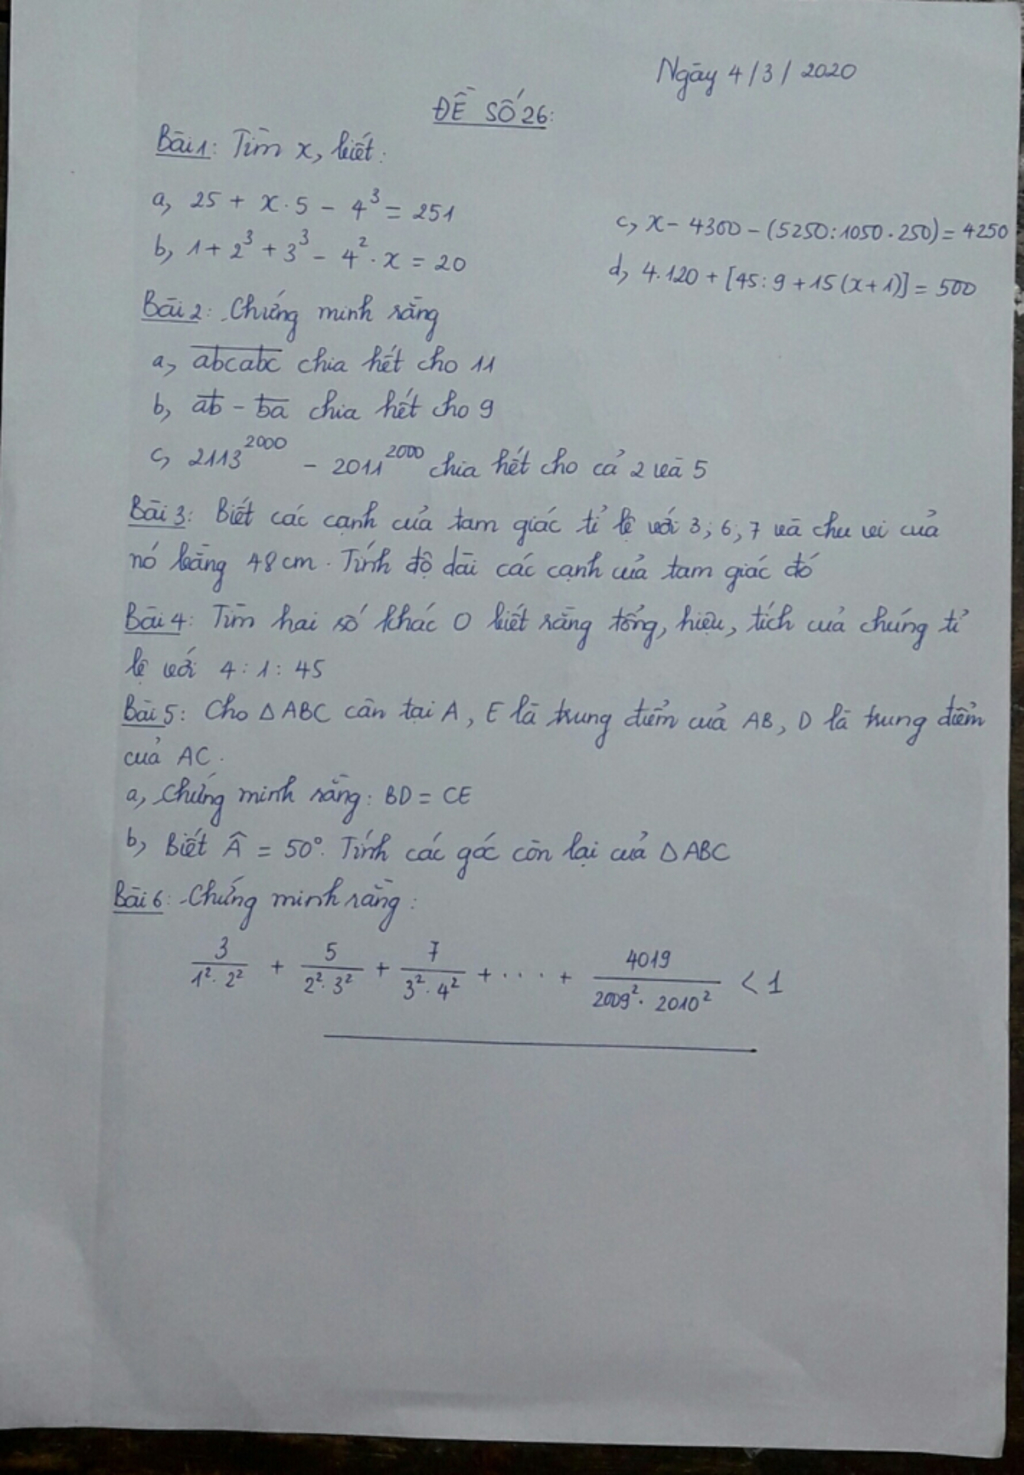 Ngày 4/3/2020
ĐỀ SỐ 26:
Bài 1: Tìm x, biết:
a, 25 + x.5 - 4³ = 251
b, 1 + 2³ + 3³ - 4².x = 20
c, x - 4300 - (5250:1050.250) = 4250
d, 4.120 + [45:9 + 15(x+1)] = 500
Bài 2: Chứng minh rằng
a, abcabc chia hết cho 11
b, ab - ba chia hết cho 9
c, 2113²⁰⁰⁰ - 2011²⁰⁰⁰ chia hết cho cả 2 và 5
Bài 3: Biết các cạnh của tam giác tỉ lệ với 3; 6; 7 và chu vi của
nó bằng 48cm. Tính độ dài các cạnh của tam giác đó
Bài 4: Tìm hai số khác 0 biết rằng tổng, hiệu, tích của chúng tỉ
lệ với 4 : 1 : 45
Bài 5: Cho △ABC cân tại A, E là trung điểm của AB, D là trung điểm
của AC.
a, Chứng minh rằng: BD = CE
b, Biết Â = 50°. Tính các góc còn lại của △ABC
Bài 6: Chứng minh rằng:
3/(1².2²) + 5/(2².3²) + 7/(3².4²) + .... + 4019/(2009².2010²) < 1